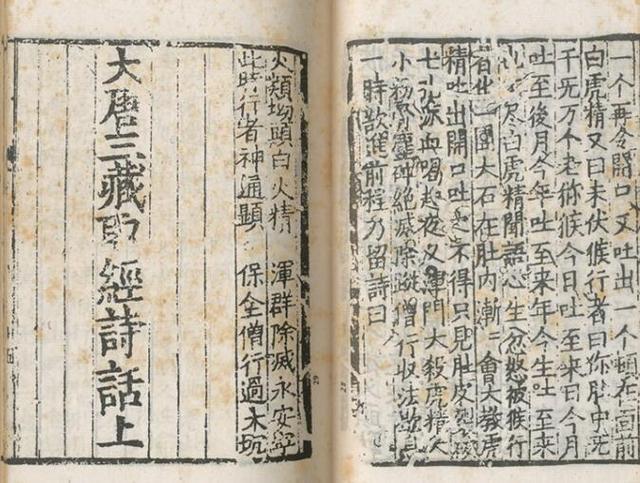 一个再令開口又吐出一个頓在面前
白虎精又曰未伏猴行者曰你肚中无
千无万个老猕猴今日吐至來日今月
吐至後月今年吐至來年今生吐至來
尽白虎精聞語心生忿怒被猴行
者化一團大石在肚内漸〻會大教虎
精吐出開口吐之不得只見肚皮裂
七孔流血喝起夜叉渾門大殺虎精大
小粉骨塵碎絕滅除蹤僧行收法歇息
一時欲進前程乃留詩曰
火類坳頭白火精 渾群除滅永安寧
此時行者神通顯 保全僧行過大坑
大唐三藏取經詩話上